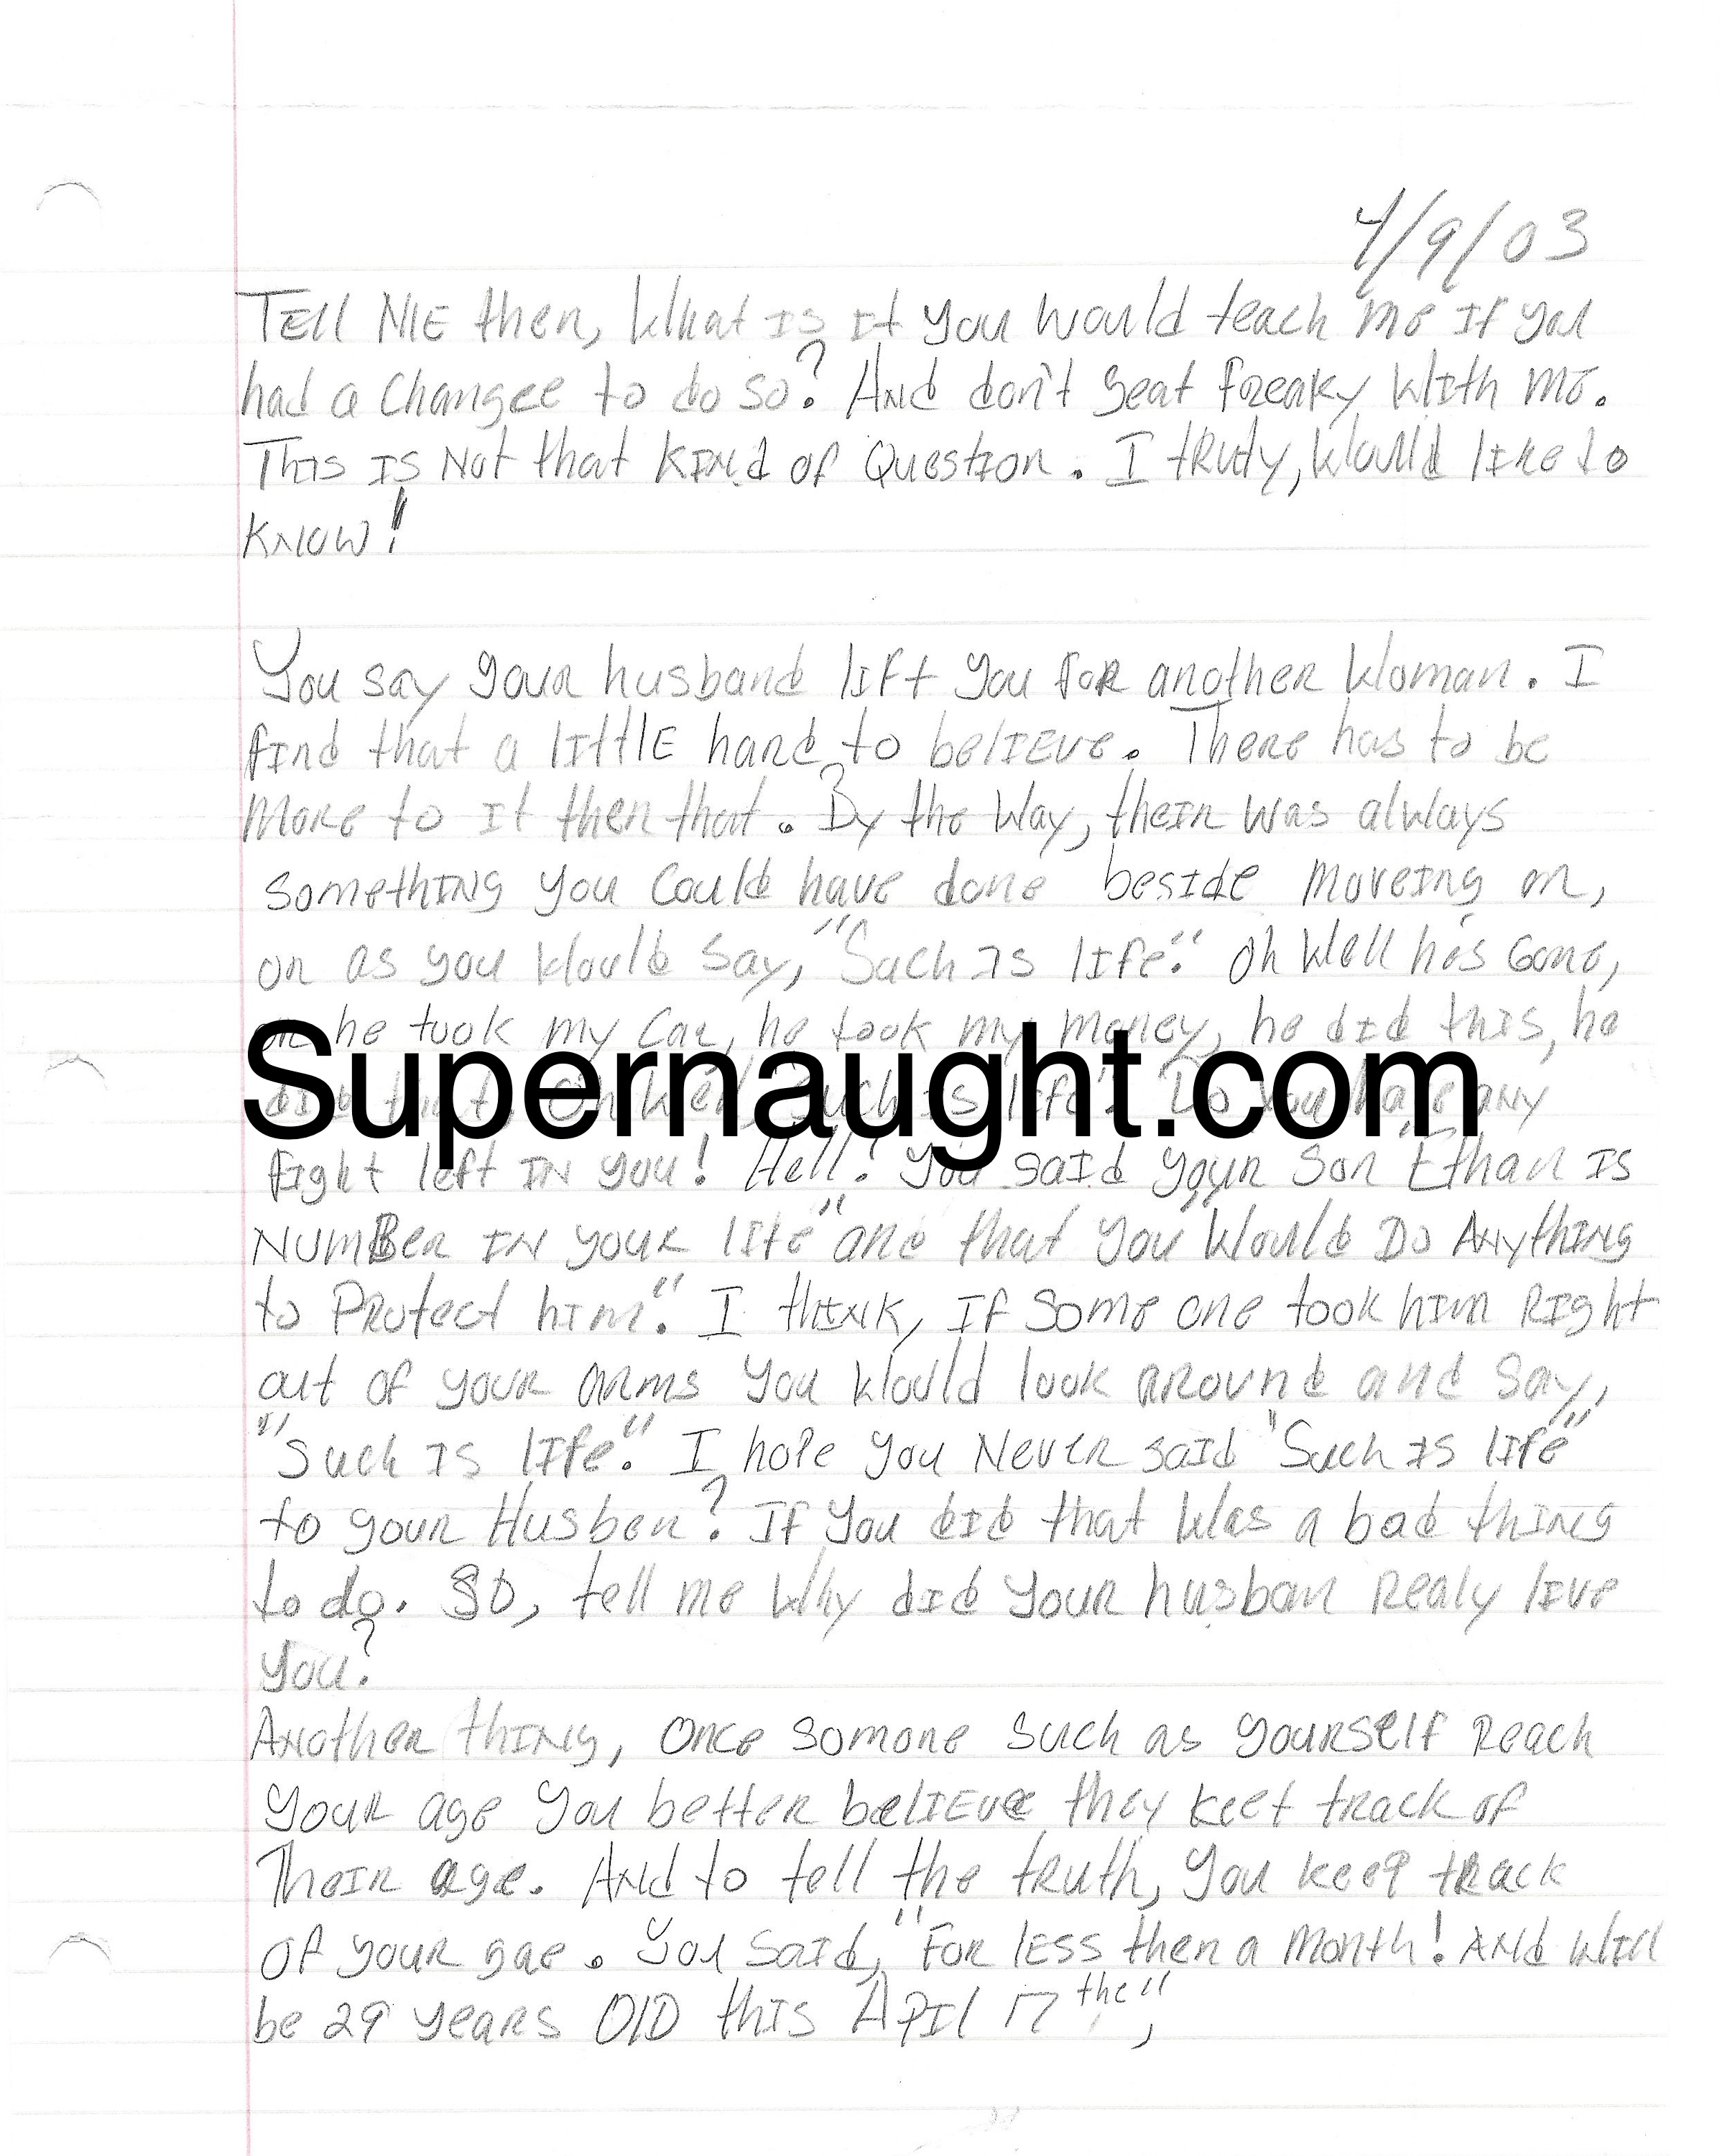 4/9/03
TEll ME then, What is it you would teach me If you
had a Changee to do so? And don't geat freaky With me.
This Is Not that KINd of Question. I truly, Would like to
KNOW!
You say your husband lift you for another Woman. I
find that a littlE hard to belIEve. There has to be
More to it then that. By the Way, their was always
something you Could have done beside moveing on,
or as you Would say, "Such is life." Oh Well he's Gone,
he took my Car, he took my money, he did this, he
such is life." Do you have any
fight left IN you! Hell! You said your Son Ethan IS
NUMBer IN your life" and that you "Would Do Anything
to Protect him." I thINK, If Some one took him Right
out of your arms you Would look around and say,
"Such is life." I hope you Never said "Such is life"
to your Husben? If you did that Was a bad thing
to do. SO, tell me Why did your husban Realy live
you?
ANother thING, once somone such as yourself Reach
your age you better belIEve they keet track of
Their age. ANd to tell the truth, you keep track
of your gae. You said, "For less then a Month! ANd Will
be 29 years OlD this APil 17 the",
Supernaught.com